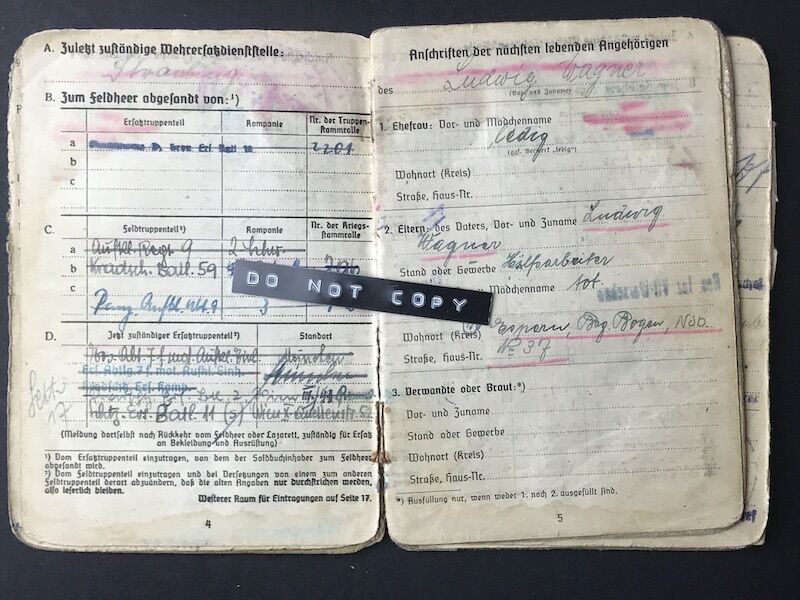 A. Zuletzt zuständige Wehrersatzdienststelle:
Straubing
B. Zum Feldheer abgesandt von:¹)
Ersatztruppenteil Kompanie Nr. der Truppen-
stammrolle
a 2201
b
c
C. Feldtruppenteil²) Kompanie Nr. der Kriegs-
stammrolle
a Aufkl. Regt. 9 2. Schw.
b Kradsch. Batl. 59
c Panz. Aufkl. Abt. 9 3
D. Jetzt zuständiger Ersatztruppenteil²) Standort
Ers. Abt. 7 f. mot. Aufkl. Einh. München
Erf. Abtlg. 7 f. mot. Aufkl. Einh. München
Ers. Batl. 11 Wien X. Quellenstr. 52
Seite
17
(Meldung dortselbst nach Rückkehr vom Feldheer oder Lazarett, zuständig für Ersatz
an Bekleidung und Ausrüstung)
¹) Vom Ersatztruppenteil einzutragen, von dem der Soldbuchinhaber zum Feldheer
abgesandt wird.
²) Vom Feldtruppenteil einzutragen und bei Versetzungen von einem zum anderen
Feldtruppenteil derart abzuändern, daß die alten Angaben nur durchstrichen werden,
also leserlich bleiben.
Weiterer Raum für Eintragungen auf Seite 17.
4
DO NOT COPY
Anschriften der nächsten lebenden Angehörigen
des Ludwig Wagner
(Vor- und Zuname)
1. Ehefrau: Vor- und Mädchenname
ledig
(ggf. Vermerk „ledig")
Wohnort (Kreis)
Straße, Haus-Nr.
2. Eltern: des Vaters, Vor- und Zuname Ludwig
Wagner
Stand oder Gewerbe Hilfsarbeiter
Mädchenname tot.
Wohnort (Kreis) Bez. Bogen, Ndb.
Straße, Haus-Nr. № 37
3. Verwandte oder Braut:*)
Vor- und Zuname
Stand oder Gewerbe
Wohnort (Kreis)
Straße, Haus-Nr.
*) Ausfüllung nur, wenn weder 1. noch 2. ausgefüllt sind.
5